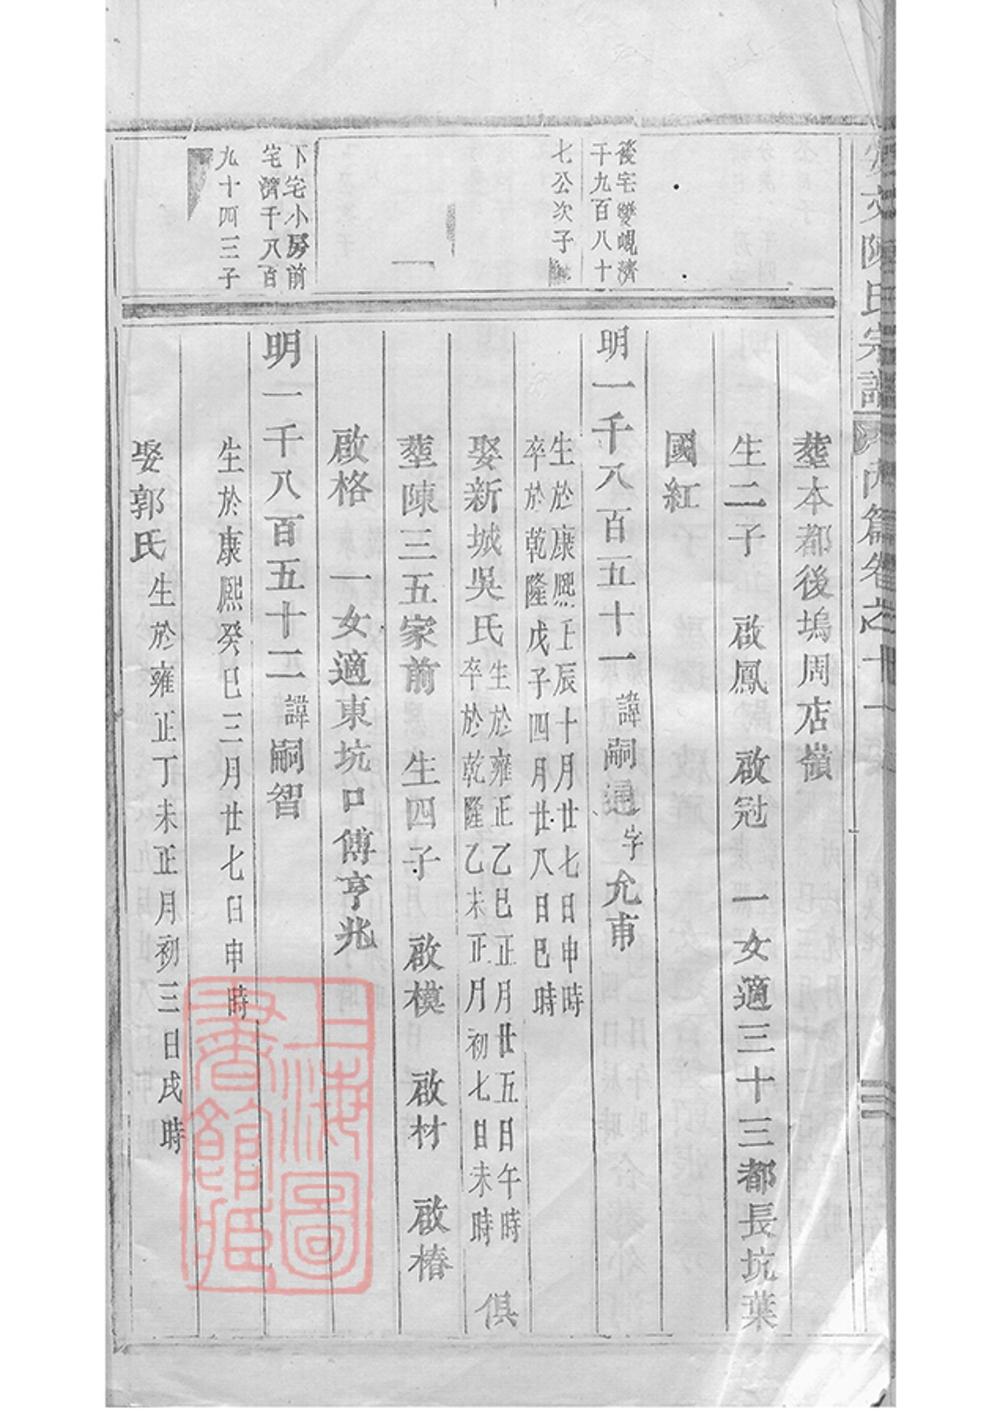 安文陳氏宗譜 內篇卷之十一
葬本都後塢周店嶺
生二子 啟鳳 啟冠 一女適三十三都長坑葉
國紅
後宅雙峴濟
千九百八十
七公次子
明一千八百五十一 諱嗣通 字允甫
生於康熙壬辰十月廿七日申時
卒於乾隆戊子四月廿八日巳時
娶新城吳氏 生於雍正乙巳正月廿五日午時
卒於乾隆乙未正月初七日未時 俱
葬陳三五家前 生四子 啟模 啟材 啟椿
啟格 一女適東坑口傅亨兆
下宅小房前
宅濟千八百
九十四三子
明一千八百五十二 諱嗣智
生於康熙癸巳三月廿七日申時
娶郭氏 生於雍正丁未正月初三日戌時
上海圖
書館藏